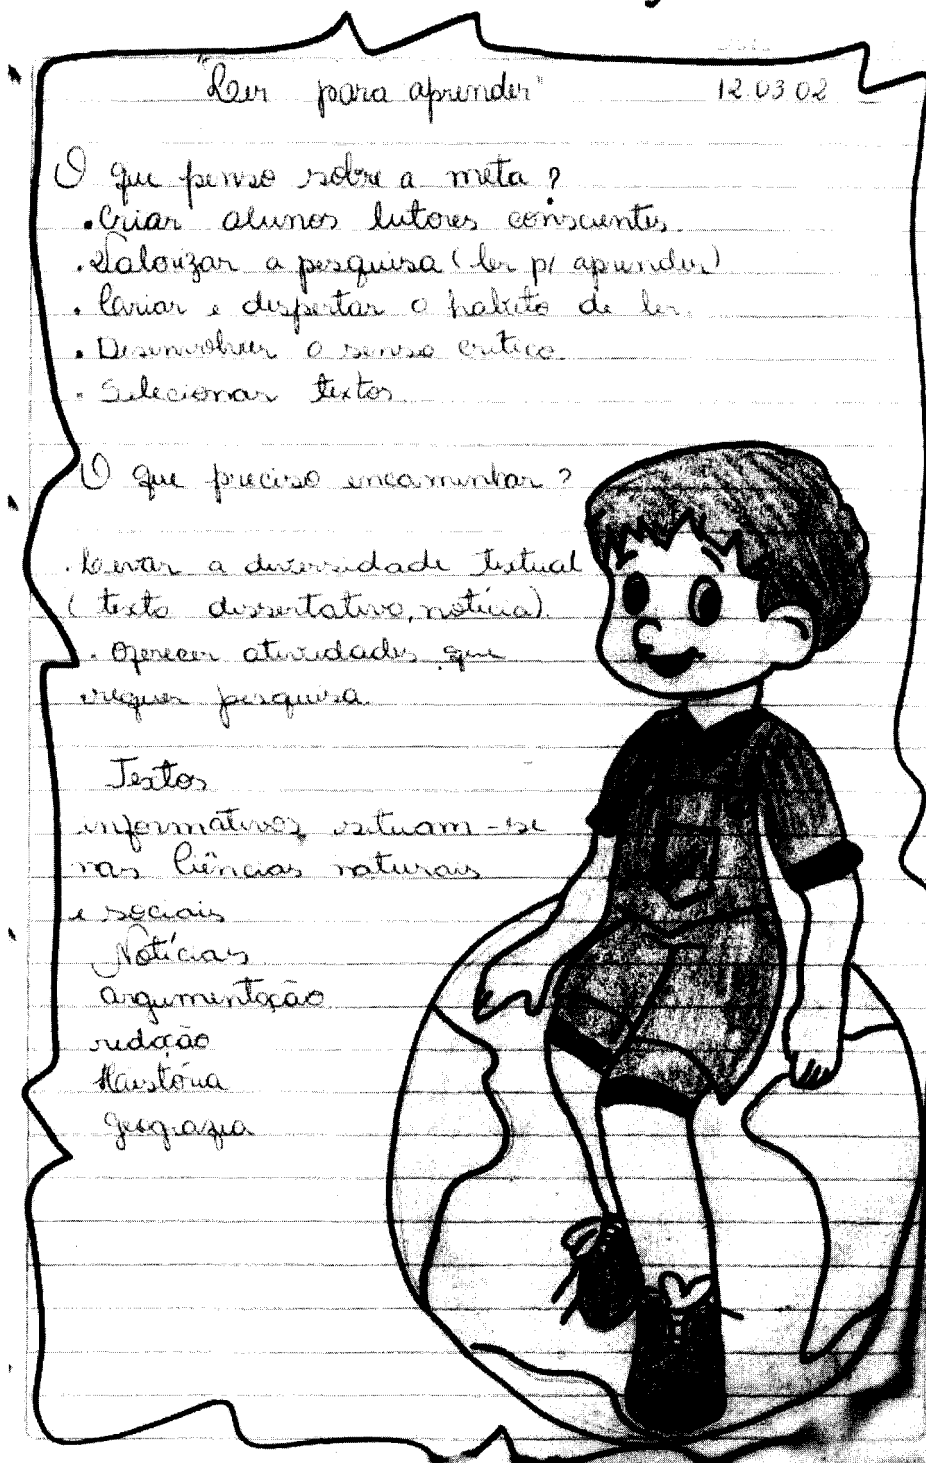 "Ler para aprender" 12.03.02
O que penso sobre a meta?
. Criar alunos leitores conscientes.
. Valorizar a pesquisa (ler p/ aprender)
. Criar e despertar o habito de ler.
. Desenvolver o senso crítico.
. Selecionar textos.
O que preciso encaminhar?
. Levar a diversidade textual
(texto dissertativo, notícia).
. Oferecer atividades que
requer pesquisa.
Textos
informativos situam-se
nas Ciências naturais
e sociais
Notícias
argumentação
redação
História
geografia